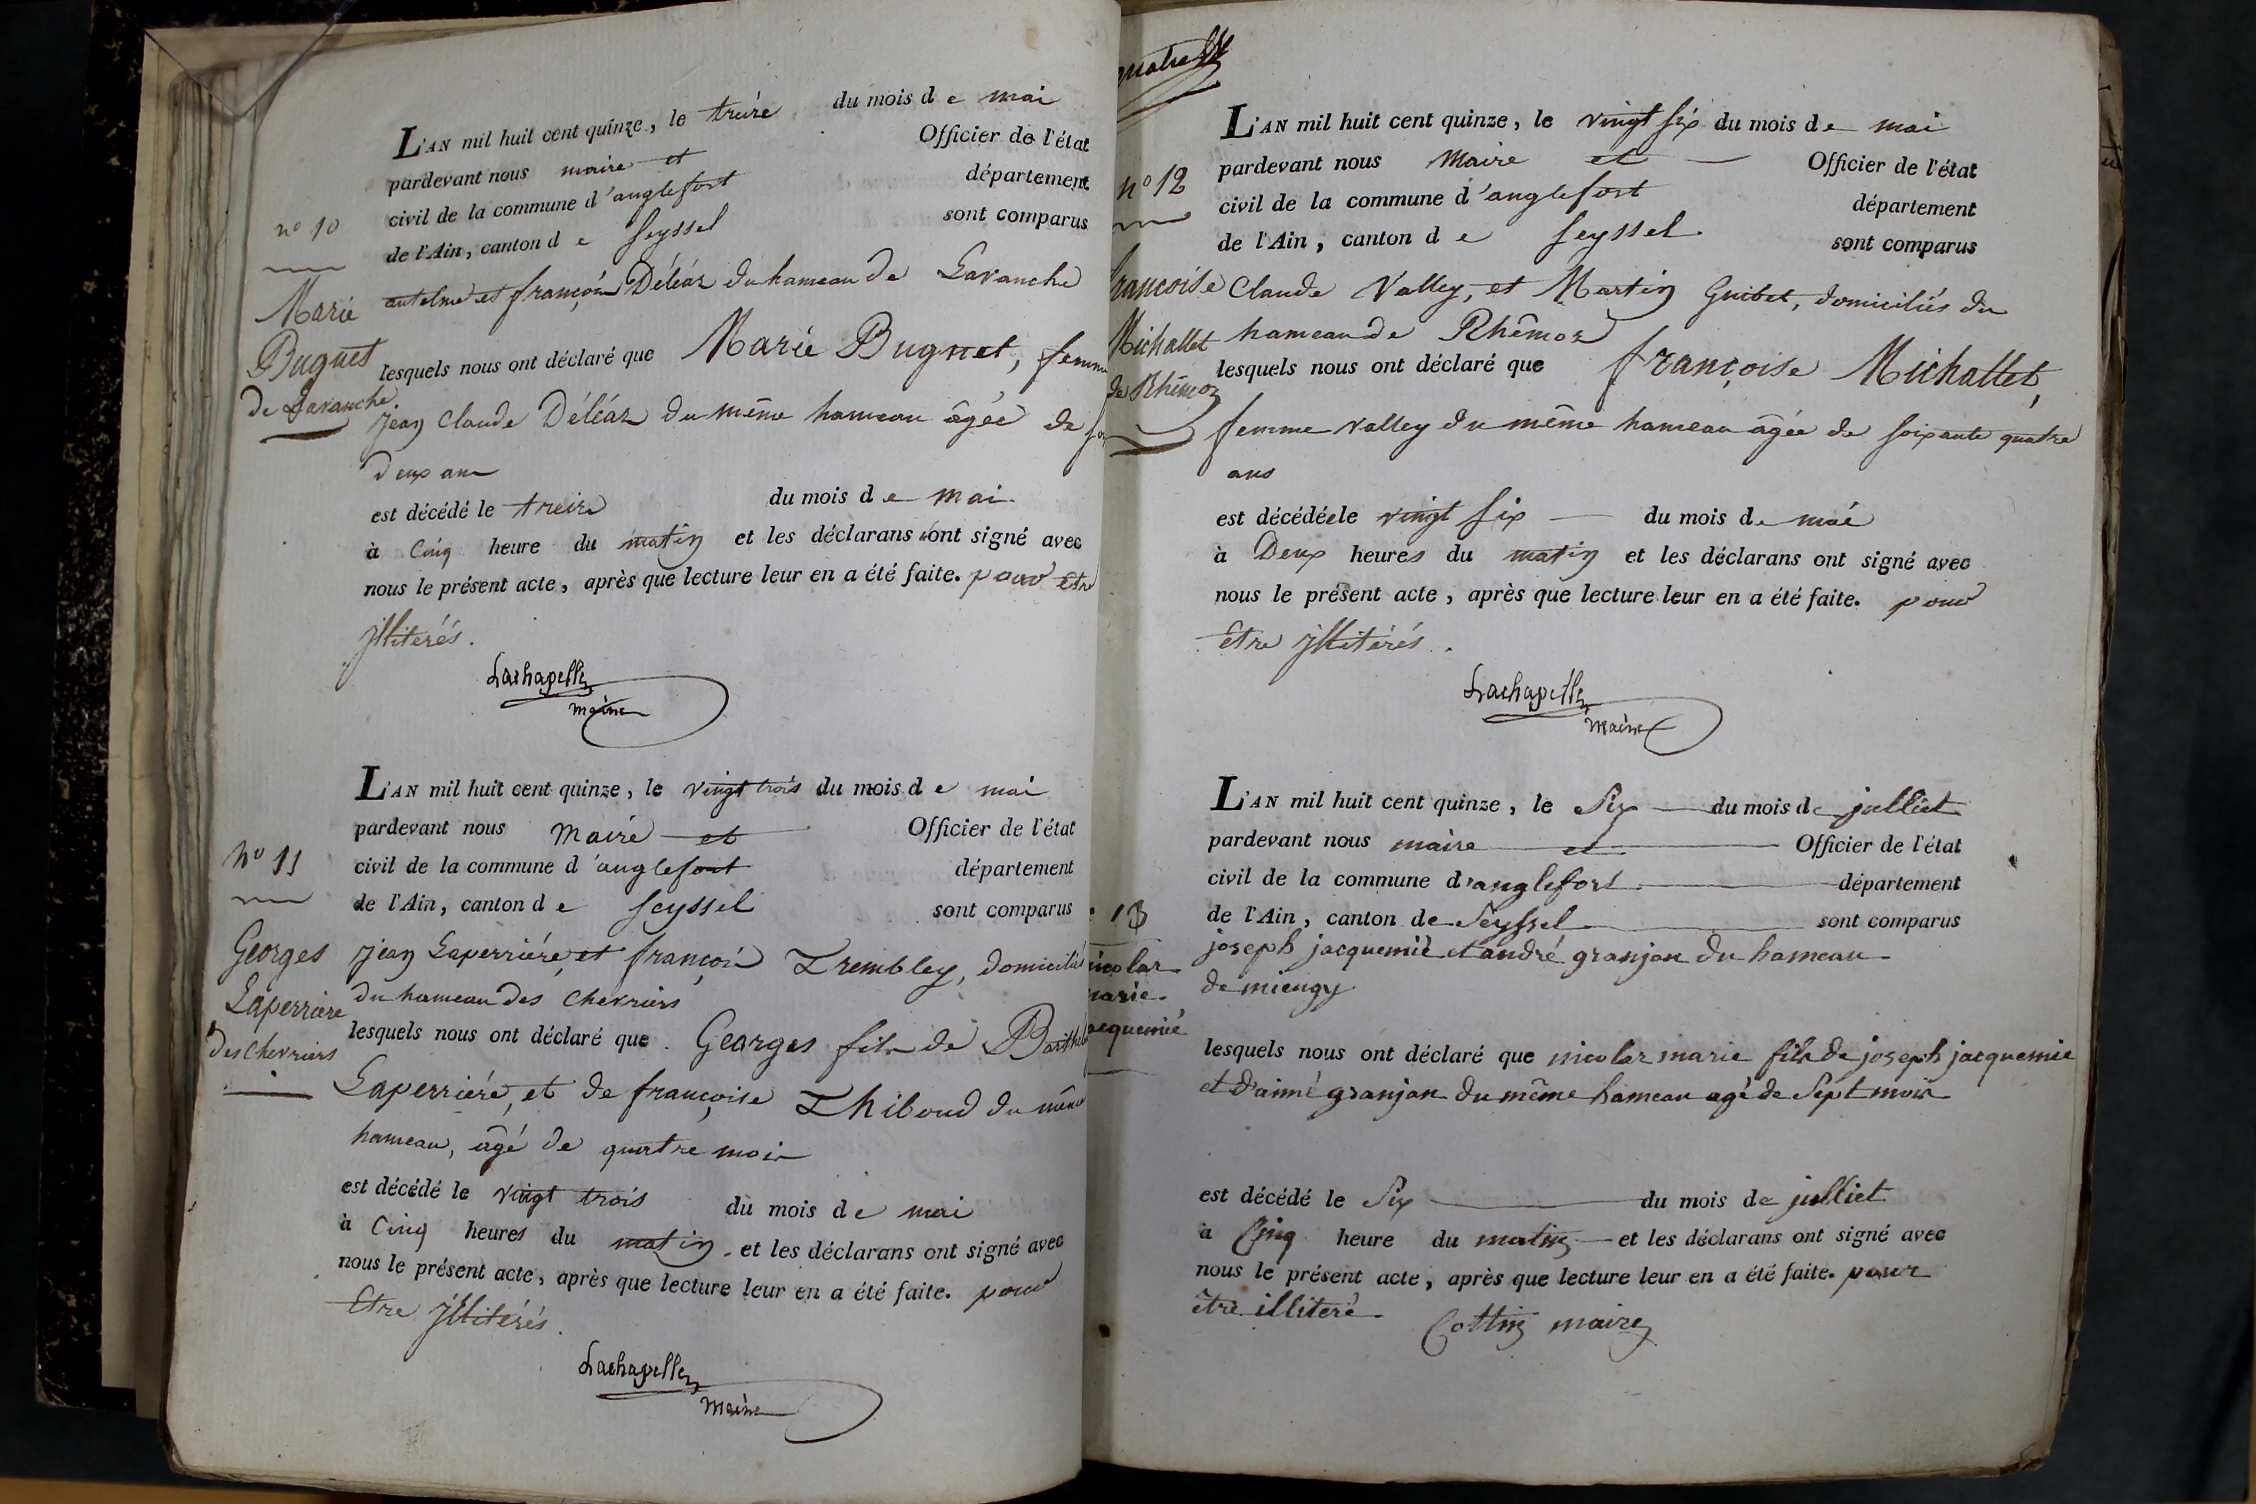 L'AN mil huit cent quinze, le treize du mois de mai
pardevant nous maire et Officier de l'état
civil de la commune d'anglefort département
de l'Ain, canton de seyssel sont comparus
n° 10
Marie
Bugnet
de Lavanche
antelme et françois Déléaz du hameau de Lavanche
lesquels nous ont déclaré que Marie Bugnet, femme
jean Claude Déléaz du même hameau âgée de
deux ans
est décédé le treize du mois de mai
à Cinq heure du matin et les déclarans ont signé avec
nous le présent acte, après que lecture leur en a été faite. pour être
jllitérés.
Lachapelle
maire
L'AN mil huit cent quinze, le vingt trois du mois de mai
pardevant nous Maire et Officier de l'état
civil de la commune d'anglefort département
de l'Ain, canton de seyssel sont comparus
n° 11
Georges
Laperriere
des chevriers
jean Laperriére, et françois Trembley, domiciliés
du hameau des Chevriers
lesquels nous ont déclaré que Georges fils de
Laperriére, et de françoise Thiboud du même
hameau, âgé de quatre mois
est décédé le vingt trois du mois de mai
à Cinq heures du matin et les déclarans ont signé avec
nous le présent acte, après que lecture leur en a été faite. pour
Etre jllitérés.
Lachapelle
maire
quatre
L'AN mil huit cent quinze, le vingt six du mois de mai
pardevant nous Maire et Officier de l'état
civil de la commune d'anglefort département
de l'Ain, canton de seyssel sont comparus
n° 12
françoise
Michallet
de Rhémoz
Claude Valley, et Martin Guibet, domiciliés du
hameau de Rhêmoz
lesquels nous ont déclaré que françoise Michallet,
femme Valley du même hameau âgée de soixante quatre
ans
est décédée le vingt six du mois de mai
à Deux heures du matin et les déclarans ont signé avec
nous le présent acte, après que lecture leur en a été faite. pour
Etre jllitérés.
Lachapelle
maire
L'AN mil huit cent quinze, le Six du mois de julliet
pardevant nous maire et Officier de l'état
civil de la commune d'anglefort département
de l'Ain, canton de Seyssel sont comparus
13
nicolas
marie
jacquemié
joseph jacquemié et andré granjon du hameau
de miengy
lesquels nous ont déclaré que nicolas marie fils de joseph jacquemie
et d'aimé granjon du même hameau agé de Sept mois
est décédé le Six du mois de julliet
à Cinq heure du matin et les déclarans ont signé avec
nous le présent acte, après que lecture leur en a été faite. pour
être illiteré
Cottin maire